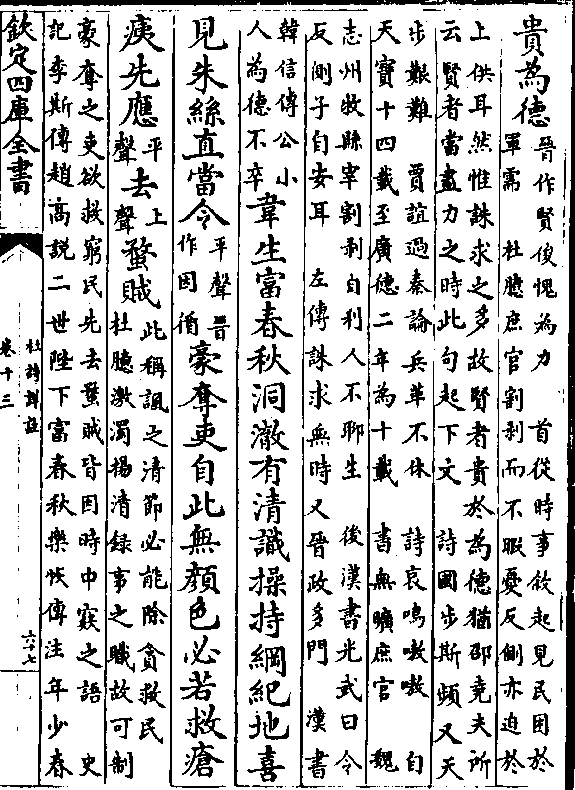 貴為德
晉作賢俊愧為力 首從時事敘起見民困於
軍需 杜臆庶官割剥而不暇憂反側亦迫於
上供耳然惟誅求之多故賢者貴於為德猶邵堯夫所
云賢者當盡力之時此句起下文 詩國步斯頻又天
步艱難 賈誼過秦論兵革不休 詩哀鳴嗷嗷 自
天寶十四載至廣德二年為十載 書無曠庶官 魏
志州牧縣宰割剥自利人不聊生 後漢書光武曰令
反側子自安耳 左傳誅求無時又晉政多門 漢書
韓信傳公小
人為德不卒
韋生富春秋洞澈有清識操持綱紀地喜
見朱絲直當令
平聲晉
作因循
豪奪吏自此無顏色必若救瘡
痍先應
平
聲
去
上
聲
蝥賊
此稱諷之清節必能除貪救民
杜臆激濁揚清録事之職故可制
豪奪之吏欲救窮民先去蝥賊皆因時中窽之語 史
記李斯傳趙高説二世陛下富春秋樂恢傳注年少春
欽定四庫全書
杜詩詳註
卷十三
六十七